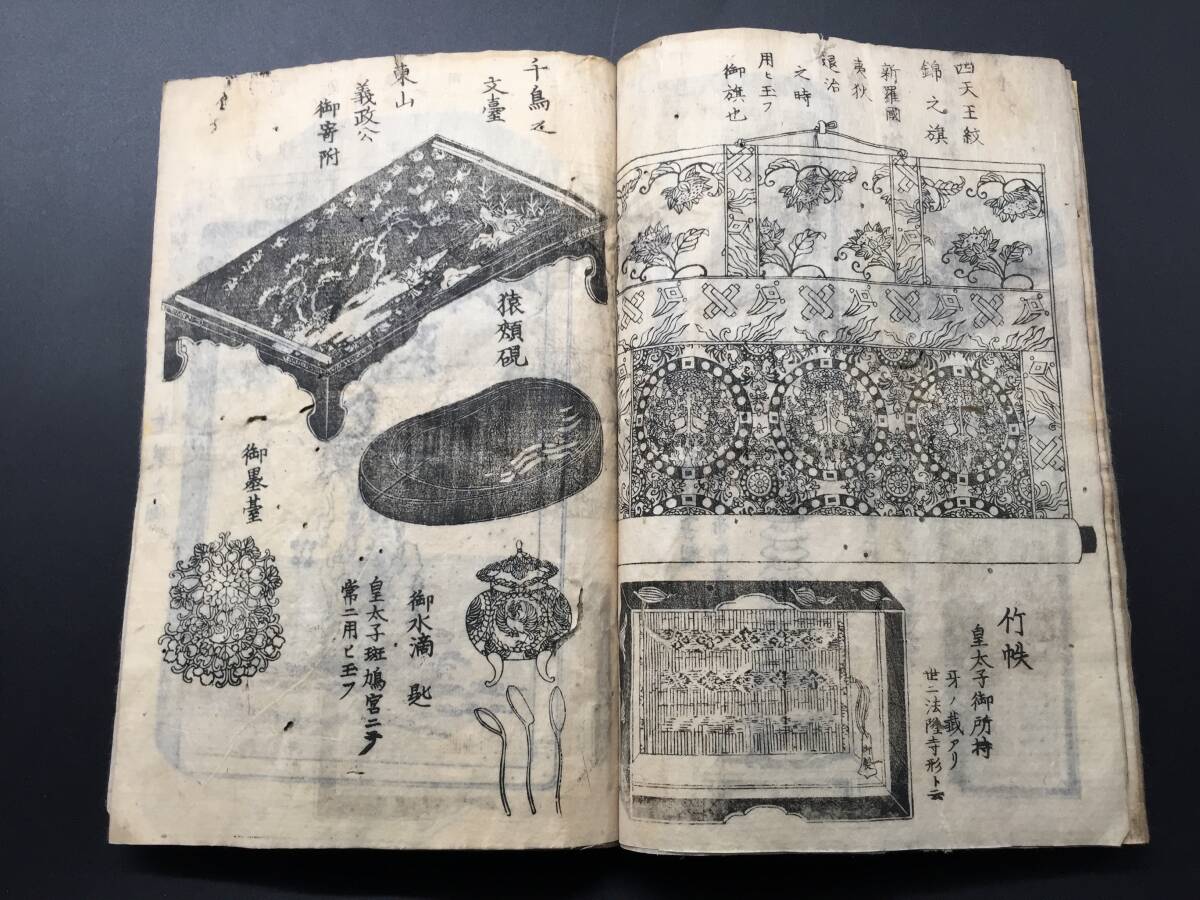 四天王紋
錦之旗
新羅國
夷狄
退治
之時
用ヒ玉フ
御旗也
竹帙
皇太子御所持
牙ノ籤アリ
世ニ法隆寺形ト云
千鳥足
文臺
東山
義政公
御寄附
猿頬硯
御墨臺
御水滴 匙
皇太子斑鳩宮ニテ
常ニ用ヒ玉フ